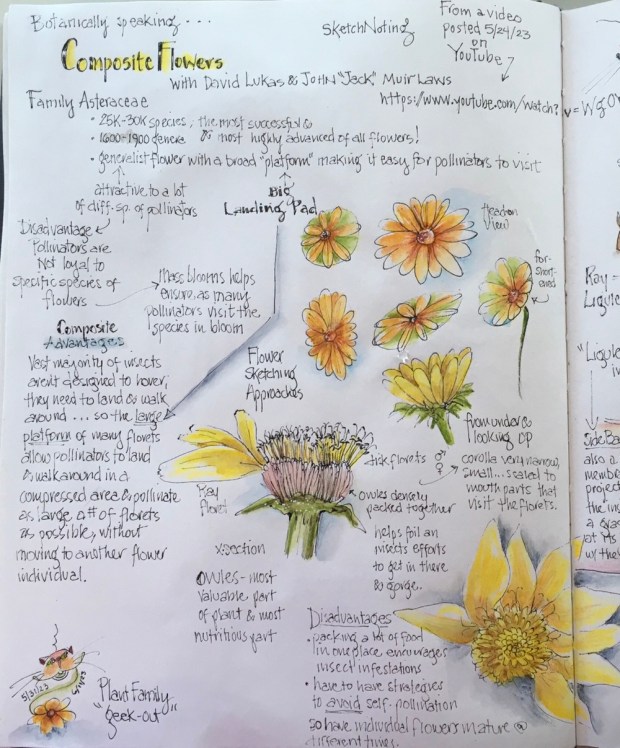 Botanically speaking...
SketchNoting
From a video
posted 5/24/23
on
YouTube
Composite Flowers
with David Lukas & John "Jack" Muir Laws
https://www.youtube.com/watch?v=Wg0
Family Asteraceae
• 25K-30K species, the most successful &
• 1600-1900 genera & most highly advanced of all flowers!
• generalist flower with a broad "platform" making it easy for pollinators to visit
attractive to a lot
of diff. sp. of pollinators
Big
Landing Pad
Disadvantage
Pollinators are
Not loyal to
specific species of
flowers
Mass blooms helps
ensure, as many
pollinators visit the
species in bloom
Composite
Advantages
Vast majority of insects
aren't designed to hover,
they need to land & walk
around... so the large
platform of many florets
allow pollinators to land
& walk around in a
compressed area & pollinate
as large a # of florets
as possible, without
moving to another flower
individual.
head on
view
for-
short-
ened
Flower
Sketching
Approaches
from under &
looking up
Ray
Floret
disk florets ♂
♀
corolla very narrow,
small... scaled to
mouth parts that
visit the florets.
ovules densely
packed together
helps foil an
insects efforts
to get in there
& gorge.
x-section
Ovules - most
valuable part
of plant & most
nutritious part
Disadvantages
• packing a lot of food
in one place encourages
insect infestations
• have to have strategies
to avoid self-pollination
so have individual flowers mature @
different times.
5/31/23
"Plant Family
geek-out"
Ray -
Ligule
"Ligule
in
Side Ba
also a
membr
project
the in
a gras